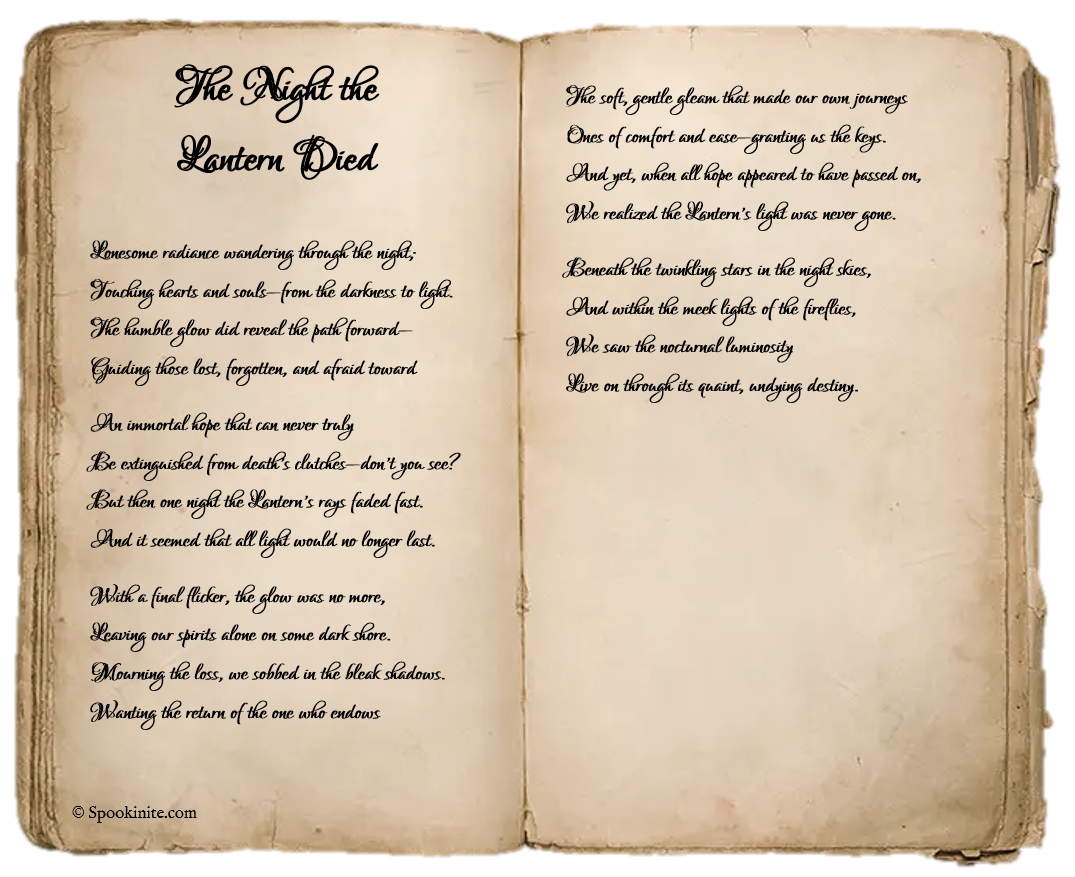 The Night the
Lantern Died
Lonesome radiance wandering through the night;
Touching hearts and souls—from the darkness to light.
The humble glow did reveal the path forward—
Guiding those lost, forgotten, and afraid toward
An immortal hope that can never truly
Be extinguished from death's clutches—don't you see?
But then one night the Lantern's rays faded fast.
And it seemed that all light would no longer last.
With a final flicker, the glow was no more,
Leaving our spirits alone on some dark shore.
Mourning the loss, we sobbed in the bleak shadows.
Wanting the return of the one who endows
© Spookinite.com
The soft, gentle gleam that made our own journeys
Ones of comfort and ease—granting us the keys.
And yet, when all hope appeared to have passed on,
We realized the Lantern's light was never gone.
Beneath the twinkling stars in the night skies,
And within the meek lights of the fireflies,
We saw the nocturnal luminosity
Live on through its quaint, undying destiny.